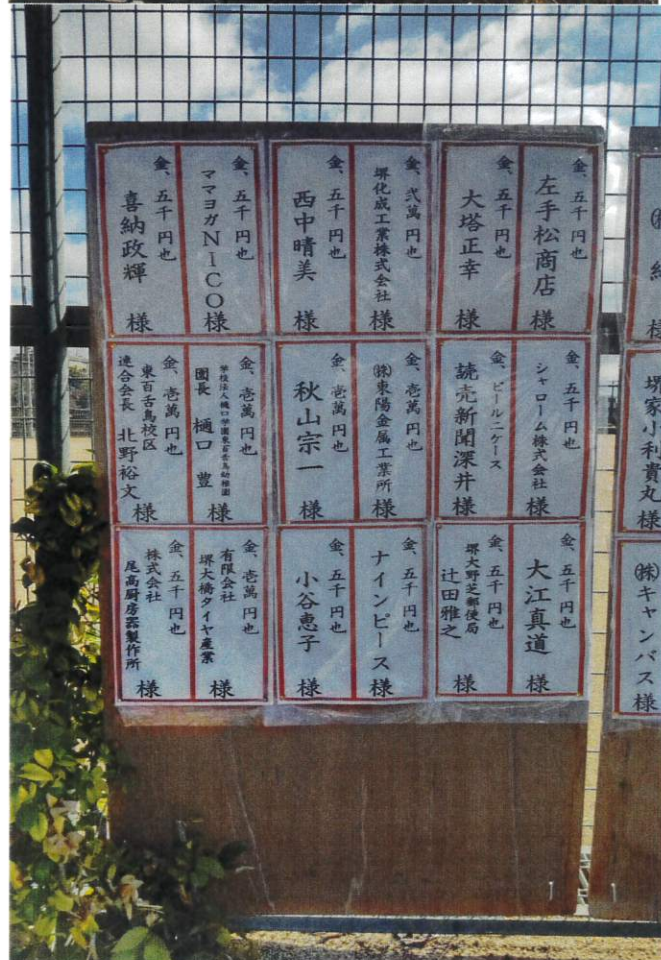 堺家小利貴丸
様
㈱キャンバス
様
金、五千円也
左手松商店
様
金、五千円也
大塔正幸
様
金、弐萬円也
堺化成工業株式会社
様
金、五千円也
西中晴美
様
金、五千円也
ママヨガNICO
様
金、五千円也
喜納政輝
様
金、五千円也
シャローム株式会社
様
金、ビール二ケース
読売新聞深井
様
金、壱萬円也
㈱東陽金属工業所
様
金、壱萬円也
秋山宗一
様
金、壱萬円也
学校法人樋口学園東百舌鳥幼稚園
園長 樋口 豊
様
金、壱萬円也
東百舌鳥校区
連合会長 北野裕文
様
金、五千円也
大江真道
様
金、五千円也
堺大野芝郵便局
辻田雅之
様
金、五千円也
ナインピース
様
金、五千円也
小谷恵子
様
金、壱萬円也
有限会社
堺大橋タイヤ産業
様
金、五千円也
株式会社
尾高厨房器製作所
様